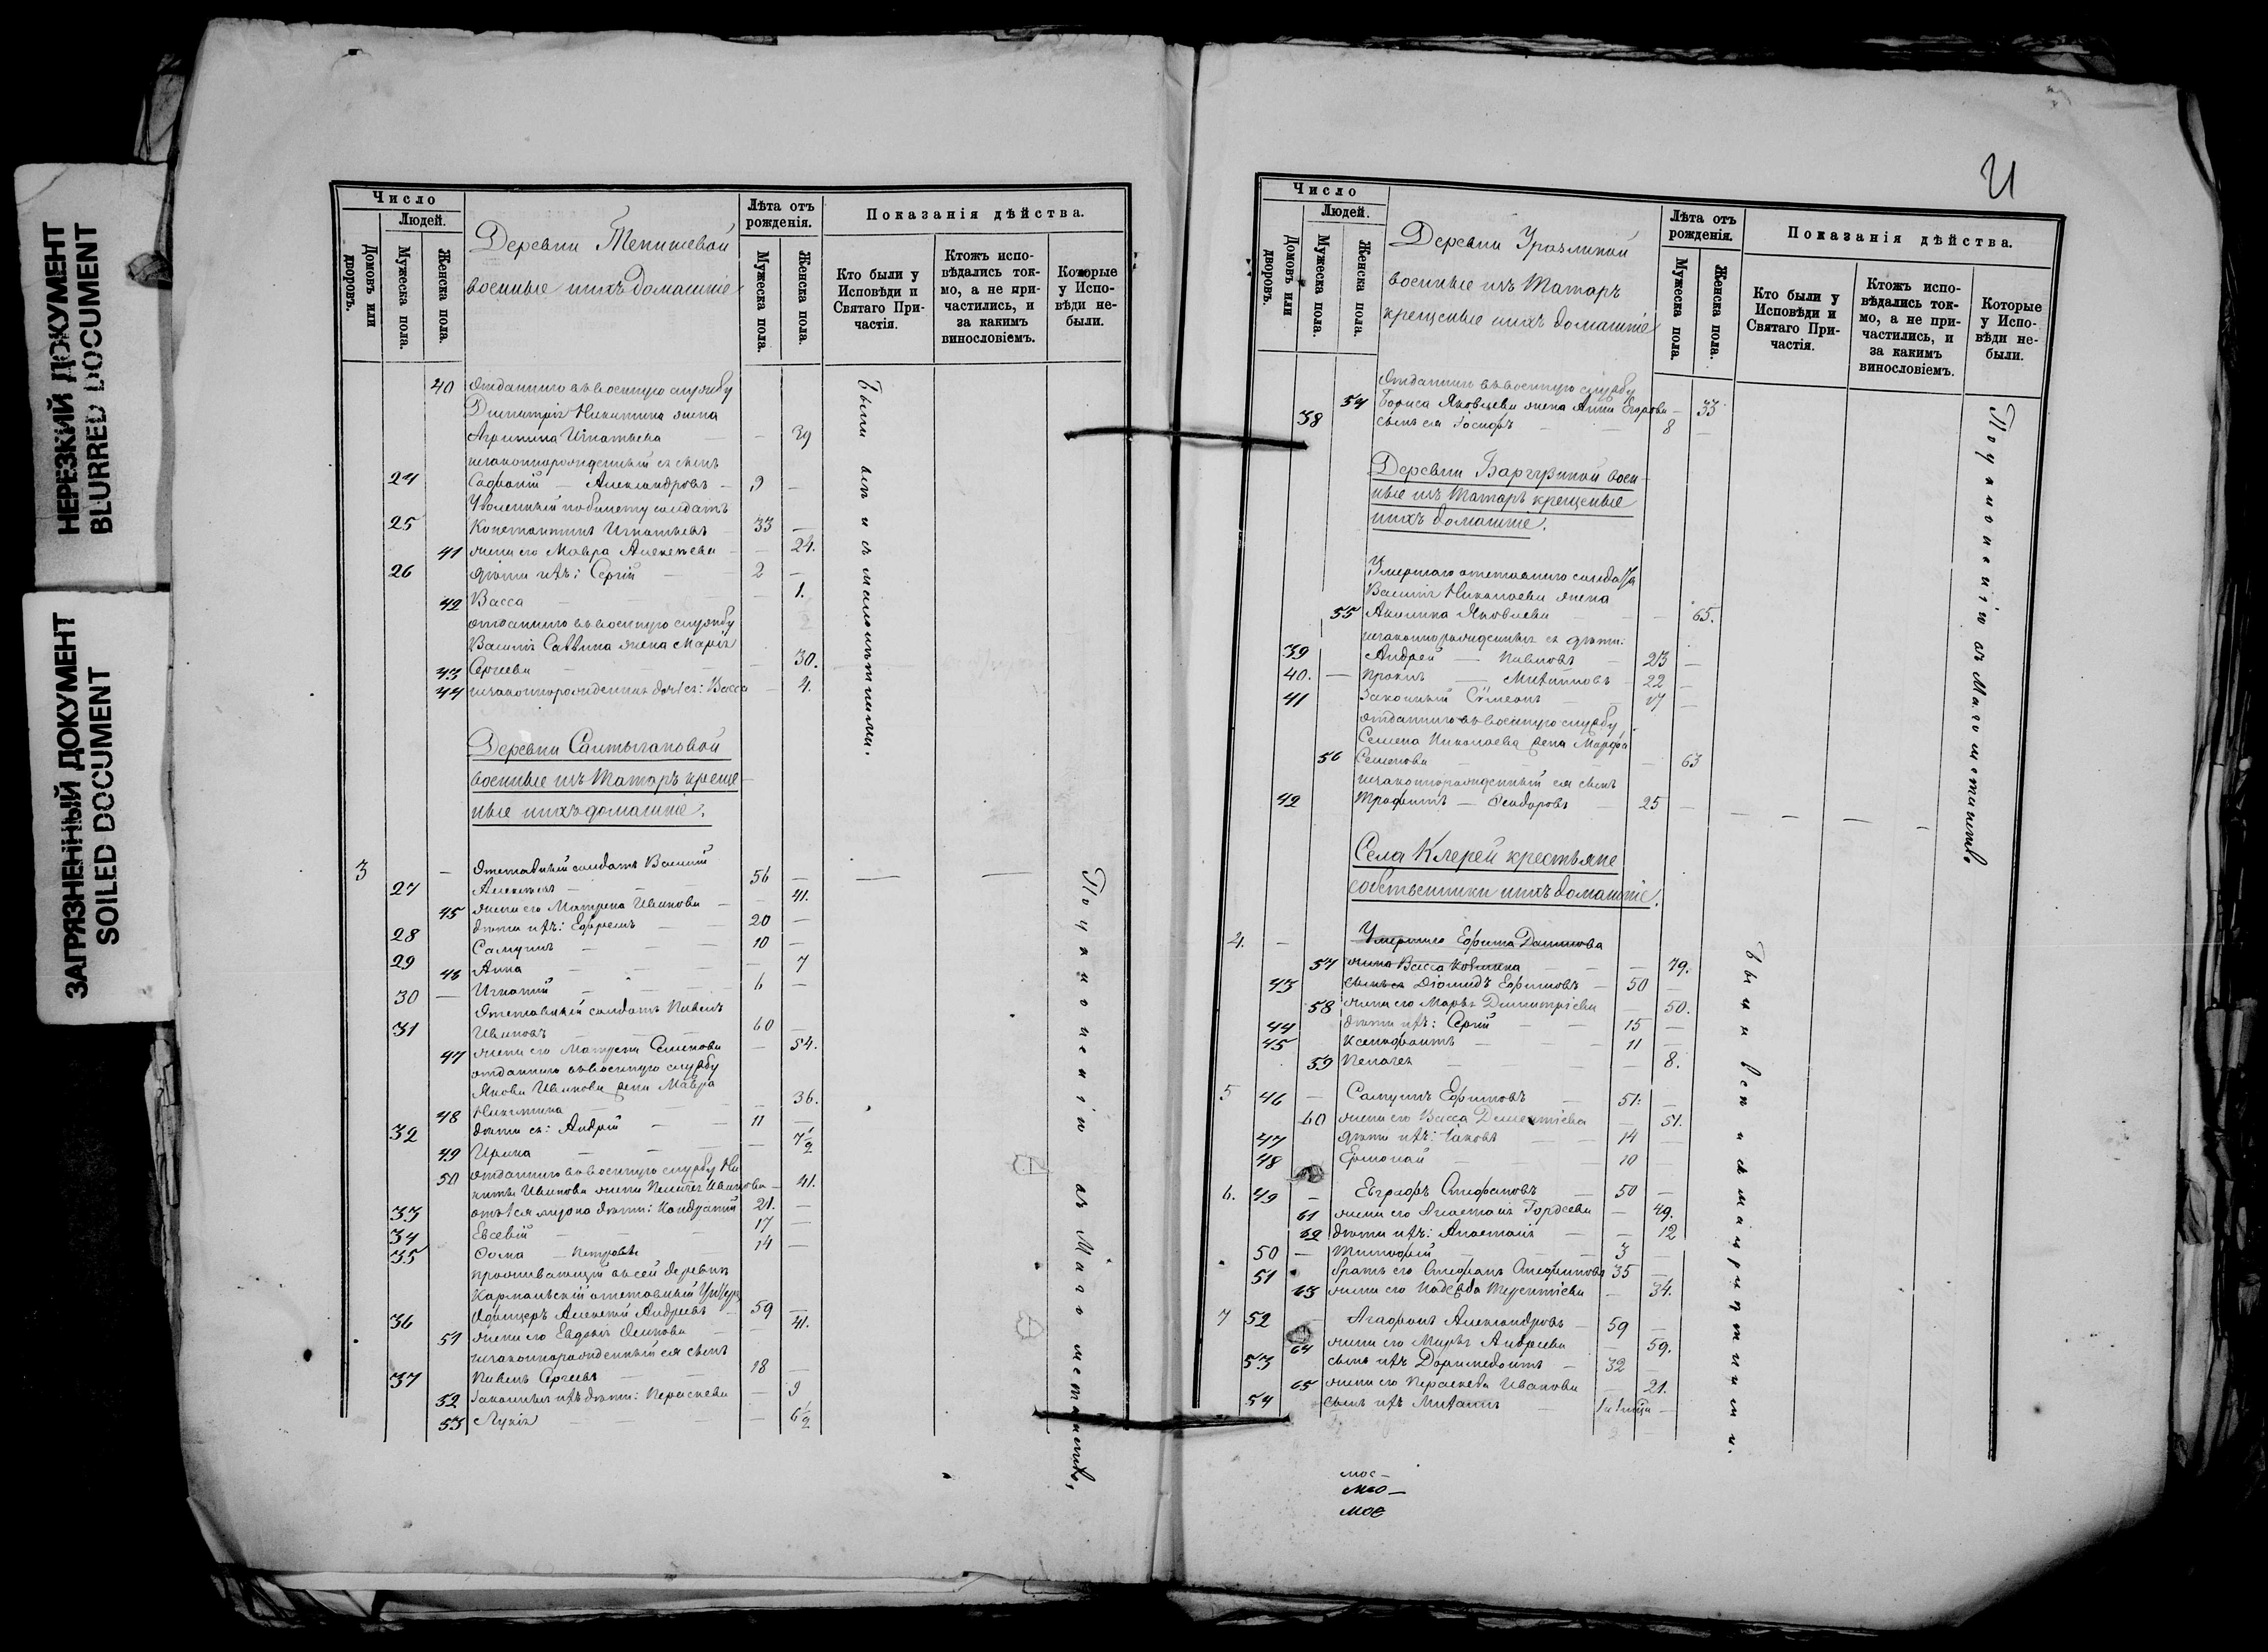 НЕРЕЗКИЙ ДОКУМЕНТ
BLURRED DOCUMENT
ЗАГРЯЗНЕННЫЙ ДОКУМЕНТ
SOILED DOCUMENT
Число
Людей.
Домовъ или дворовъ.
Мужеска пола.
Женска пола.
Деревни Тенишевой
военные ихъ домашніе
Лѣта отъ рожденія.
Мужеска пола.
Женска пола.
Показанія дѣйства.
Кто были у Исповѣди и Святаго Причастія.
Ктожъ исповѣдались токмо, а не причастились, и за какимъ винословіемъ.
Которые у Исповѣди небыли.
40 отданнаго въ военную службу
Димитрія Никитина жена
Агрипина Игнатьева — — 39
незаконнорожденный ея сынъ
24 Софоній — Александровъ — 9 —
Уволенный по билету солдатъ
25 Константинъ Игнатьевъ — 33 —
41 жена его Мавра Алексѣева — — 24.
26 дѣти ихъ: Сергій — — 2 —
42 Васса — — — 1.
отданнаго въ военную службу
Василія Саввина жена Марія
43 Сергеева — — — 30.
44 незаконнорожденная дочь ея: Васса — 4.
Были всѣ и съ малолѣтними.
Деревни Салтыгановой
военные изъ татаръ креще
ные ихъ домашніе.
3 — Отставный солдатъ Василій
27 Алексѣевъ — — — 56 —
45 жена его Матрена Иванова — — 41.
28 дѣти ихъ: Ефремъ — — 20 —
29 Самуилъ — — — 10 —
46 Анна — — — — 7
30 — Игнатій — — — 6 —
Отставный солдатъ Павелъ
31 Ивановъ — — — 60 —
47 жена его Матрена Семенова — 54.
отданнаго въ военную службу
Якова Иванова жена Мавра
48 Никитина — — — — 36.
32 дѣти ея: Андрей — — 11 —
49 Ирина — — — — 7 1/2
50 отданнаго въ военную службу Ни
киты Иванова жена Пелагея Иванова — 41.
33 отъ ея мужа дѣти: Кондратій 21. —
34 Евсевій — — — 17 —
35 Ѳома — Петровы 14 —
проживающій въ сей деревнѣ
Кармальскій отставный Унтеръ
36 Офицеръ Алексѣй Андреевъ — 59 —
51 жена его Евдокія Осипова — — 41.
незаконнорожденный ея сынъ
37 Павелъ Сергеевъ — — 18 —
52 законные ихъ дѣти: Параскева — 9
53 Лукія — — — — 6 1/2
По уклоненію въ Магометанство,
Число
Людей.
Домовъ или дворовъ.
Мужеска пола.
Женска пола.
Деревни Уразлиной
военные изъ татаръ
крещеные ихъ домашніе
Лѣта отъ рожденія.
Мужеска пола.
Женска пола.
Показанія дѣйства.
Кто были у Исповѣди и Святаго Причастія.
Ктожъ исповѣдались токмо, а не причастились, и за какимъ винословіемъ.
Которые у Исповѣди небыли.
Отданнаго въ военную службу
54 Бориса Яковлева жена Анна Егорова — 33
38 сынъ ея Іосифъ — — 8 —
Деревни Баргузиной воен-
ные изъ татаръ крещеные
ихъ домашніе.
Умершаго отставнаго солдата
Василія Николаева жена
55 Акилина Яковлева — — — 65.
незаконнорожденные ея дѣти:
39 Андрей — Павловъ — 23 —
40. — Прокл — — 22 —
41 Законный Симеонъ — — 17 —
отданнаго въ военную службу
Семена Николаева жена Марфа
56 Семенова — — — — 63
незаконнорожденный ея сынъ
42 Трофимъ — Ѳеодоровъ — 25 —
По уклоненію въ Магометанство
Села Клерей крестьяне
собственники ихъ домашніе.
4. — Умершаго Ефима Данилова
57 жена Васса — — — 79.
43 сынъ ея Діомидъ Ефимовъ — 50 —
58 жена его Марѳа Димитріева — 50.
44 дѣти ихъ: Сергій — — 15 —
45 Ксенофонтъ — — — 11 —
59 Пелагея — — — — 8.
5 46 — Самуилъ Ефимовъ — 51. —
60 жена его Васса Дементіева — 51.
47 дѣти ихъ: Іаковъ — — 14 —
48 Ермолай — — — 10 —
6. 49 — Евграфъ Стефановъ — 50 —
61 жена его Анастасія Гордѣева — 49.
62 дѣти ихъ: Анастасія — — 12
50 — Тимофей — — — 3 —
51 братъ его Стефанъ Стефановъ 35 —
63 жена его Надежда Терентіева — 34.
7 52 — Агафонъ Александровъ — 59 —
64 жена его Марѳа Андреева — 59.
53 сынъ ихъ Доримедонтъ — 32 —
65 жена его Параскева Иванова — 21.
54 сынъ ихъ —
Были всѣ и съ малолѣтними.
мос —
мю —
мое